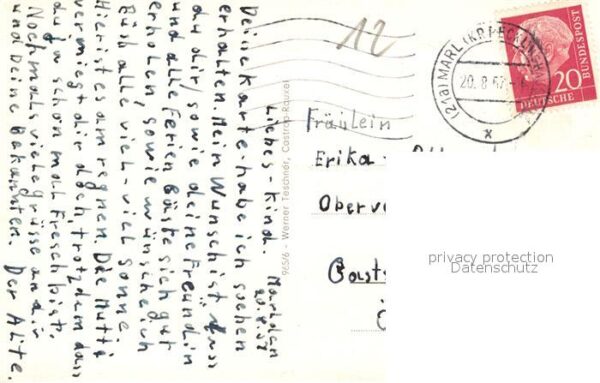 Marl den
20.8.57
Liebes-kind.
Deine Karte habe ich soeben
erhalten. Mein Wunsch ist dass
du dir/sowie deine Freundin
und alle Ferien Gäste sich gut
erholen, sowie wünsche ich
Euch alle viel-viel Sonne.
Hier ist es am regnen. Die Mutti
vermisgt dir doch, trotzdem dass
du ja schon mal Fresch bist.
Nochmals viele grüsse an dir
und Deine Bekannten. Der Alte.
965/6 - Werner Teschner, Castrop-Rauxel
12
(21a) MARL (KR RECKLINGH
20.8.57
x
20
DEUTSCHE
BUNDESPOST
Fräulein
Erika
Oberv
Gasts
privacy protection
Datenschutz